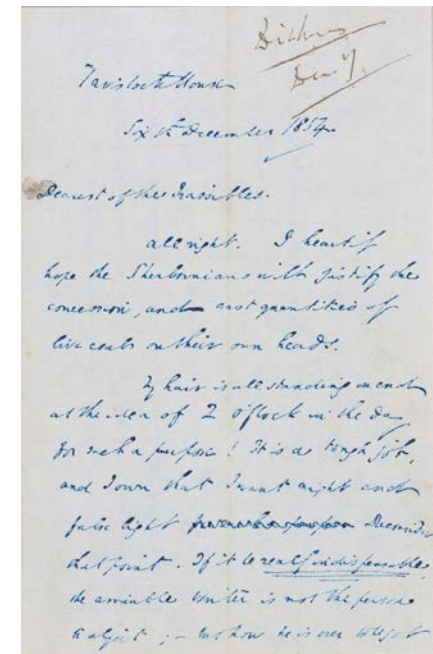 Dickens
Dec 7.
Tavistock House
Sixth December 1854.
Dearest of the Irascibles.
All right. I heartily
hope the Sherbornians will justify the
concession, and cast quantities of
live coals on their own heads.
My hair is all standing on end
at the idea of 2 o'Clock in the day
for such a purpose! It is a tough job,
and I own that I want night and
false light
that point. If it be really indispensable,
the amiable writer is not the person
to object; - but how he is ever to get